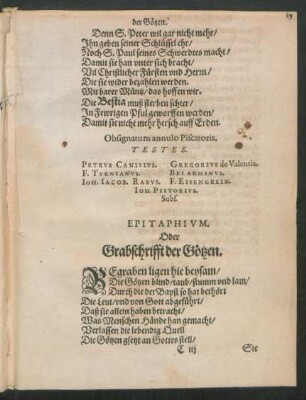 der Götzen.
Denn S. Peter wil gar nicht mehr/
Ihn geben seiner Schlüssel ehr/
Noch S. Paul seines Schwerdtes macht/
Damit sie han unter sich bracht/
Vil Christlicher Fürsten und Herrn/
Die sie wider bezahlen werden.
Mit barer Müntz/ das hoffen wir.
Die Bestia muß sterben schier/
In Fewrigen Pful geworffen werden/
Damit sie nicht mehr hersch auff Erden.
Obsignatum annulo Piscatoris.
TESTES.
PETRVS CANISIVS. GREGORIVS de Valentia.
F. TVRNIANVS. BELARMINVS.
IOH. IACOB. RABVS. F. EISENGREIN.
IOH. PISTORIVS.
Subs.
EPITAPHIVM,
Oder
Grabschrifft der Götzen.
BEgraben ligen hie beysam/
Die Götzen blind/ taub/ stumm und lam/
Durch die der Bapst so hat bethört
Die Leut/ und von Gott abgeführt/
Daß sie allein haben betracht/
Was Menschen Hände han gemacht/
Verlassen die lebendig Quell
Die Götzen gsetzt an Gottes stell/
C iij Sie